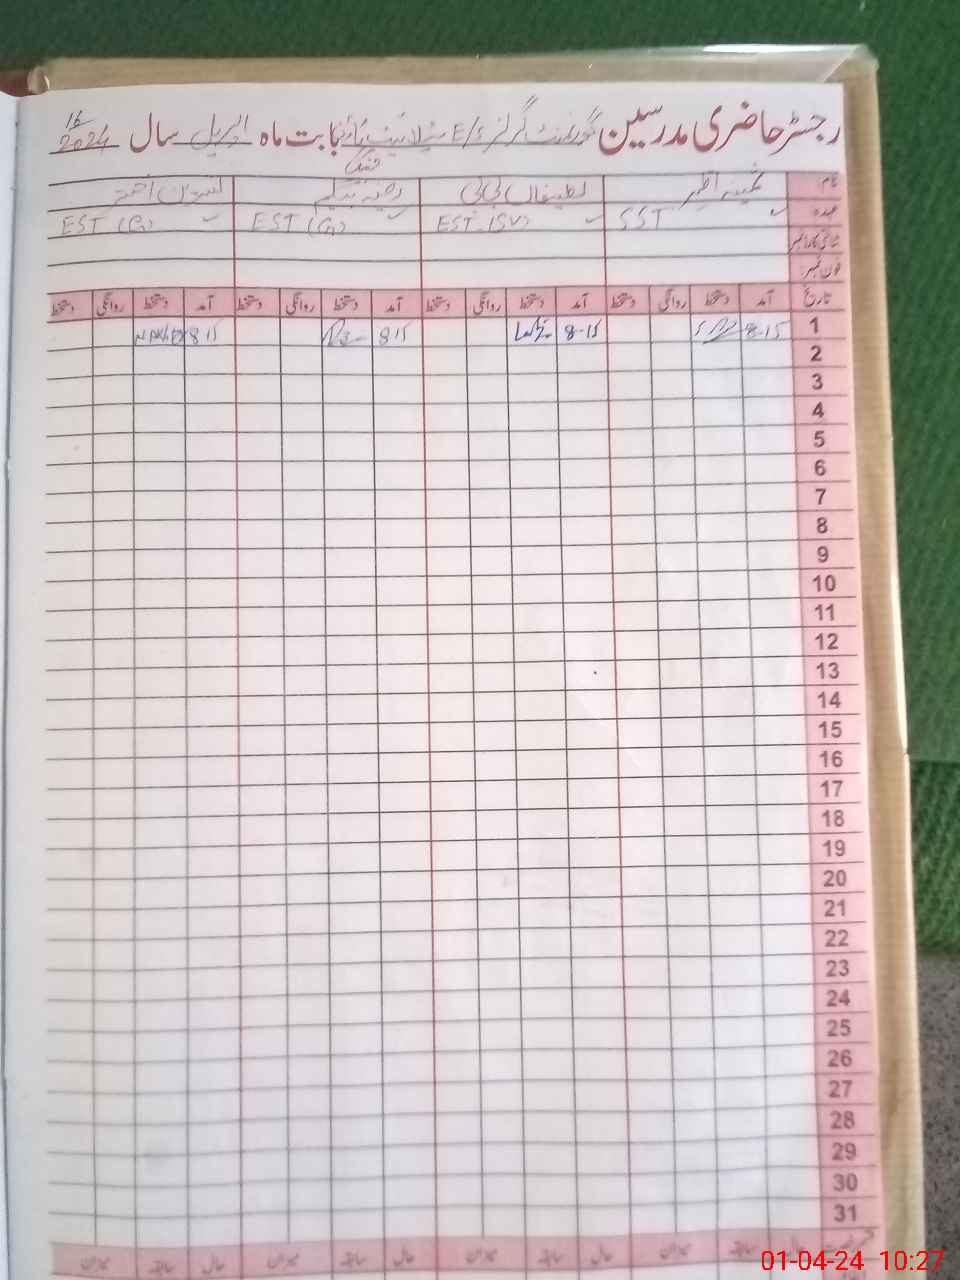 رجسٹر حاضری مدرسین گورنمنٹ گرلز E/S بابت ماہ اپریل سال 2024
16
نام
عہدہ SST EST (SV) EST (G) EST (G)
شناختی کارڈ نمبر
فون نمبر
تاریخ آمد دستخط روانگی دستخط آمد دستخط روانگی دستخط آمد دستخط روانگی دستخط آمد دستخط روانگی دستخط
1 8-15 8-15 8 15 8 15
2
3
4
5
6
7
8
9
10
11
12
13
14
15
16
17
18
19
20
21
22
23
24
25
26
27
28
29
30
31
حال سابقہ میزان حال سابقہ میزان حال سابقہ میزان حال سابقہ میزان
01-04-24 10:27